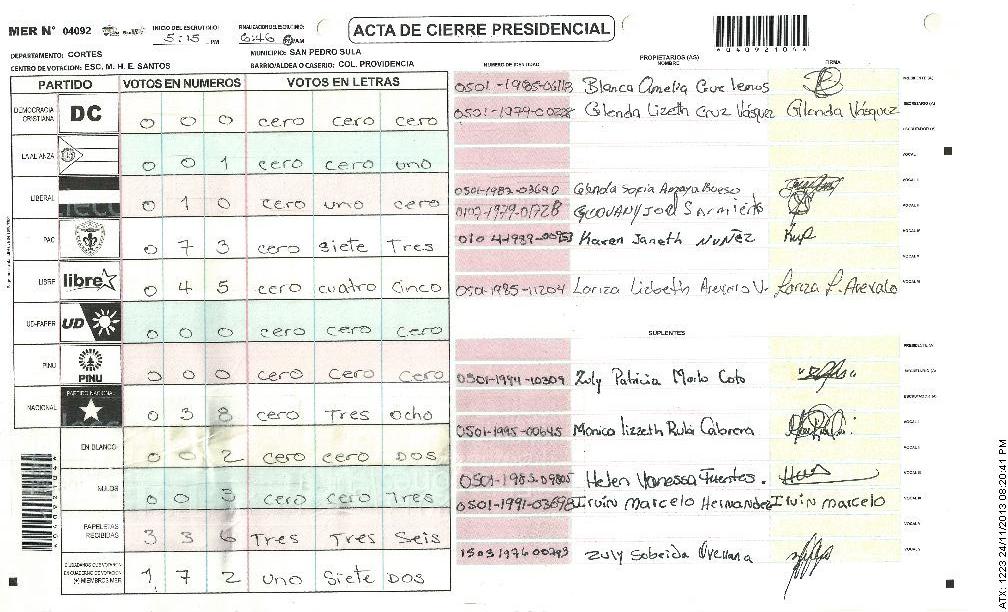 MER N° 04092
INICIO DEL ESCRUTINIO: 5:15 PM
FINALIZACION DEL ESCRUTINIO: 6:46 PM
ACTA DE CIERRE PRESIDENCIAL
DEPARTAMENTO: CORTES
MUNICIPIO: SAN PEDRO SULA
CENTRO DE VOTACION: ESC. M. H. E. SANTOS
BARRIO/ALDEA O CASERIO: COL. PROVIDENCIA
PARTIDO VOTOS EN NUMEROS VOTOS EN LETRAS
DEMOCRACIA CRISTIANA DC 0 0 0 cero cero cero
LA ALIANZA 0 0 1 cero cero uno
LIBERAL 0 1 0 cero uno cero
PAC 0 7 3 cero siete Tres
LIBRE libre 0 4 5 cero cuatro cinco
UD-FAPER UD 0 0 0 cero cero cero
PINU PINU 0 0 0 cero cero cero
NACIONAL PARTIDO NACIONAL 0 3 8 cero Tres ocho
EN BLANCO 0 0 2 cero cero Dos
NULOS 0 0 3 cero cero Tres
PAPELETAS RECIBIDAS 3 3 6 Tres Tres Seis
(+) MIEMBROS MER 1 7 2 uno Siete Dos
NUMERO DE IDENTIDAD
PROPIETARIOS (AS)
NOMBRE
FIRMA
Blanca Amelia
0501-1979-00228 Glenda Lizeth Cruz Vásquez Glenda Vásquez
0501-1982-03690 Glenda Sofia Amaya Bueso
0107-1979-01728 Geovany Joel Sarmiento
Karen Janeth Nuñez
0501-1985-11204 Loriza Lizbeth Arevalo V. Loriza L. Arevalo
SUPLENTES
0501-1994-10309 Zuly Patricia Melo Coto
0501-1995-00645 Monica lizzeth Rula Cabrera
0501-1983-09805 Helen Vanessa Fuentes.
0501-1991-03698 Irvin Marcelo Hernandez Irvin marcelo
Zuly Sobeida Orellana
ATX: 1223 24/11/2013 08:20:41 PM